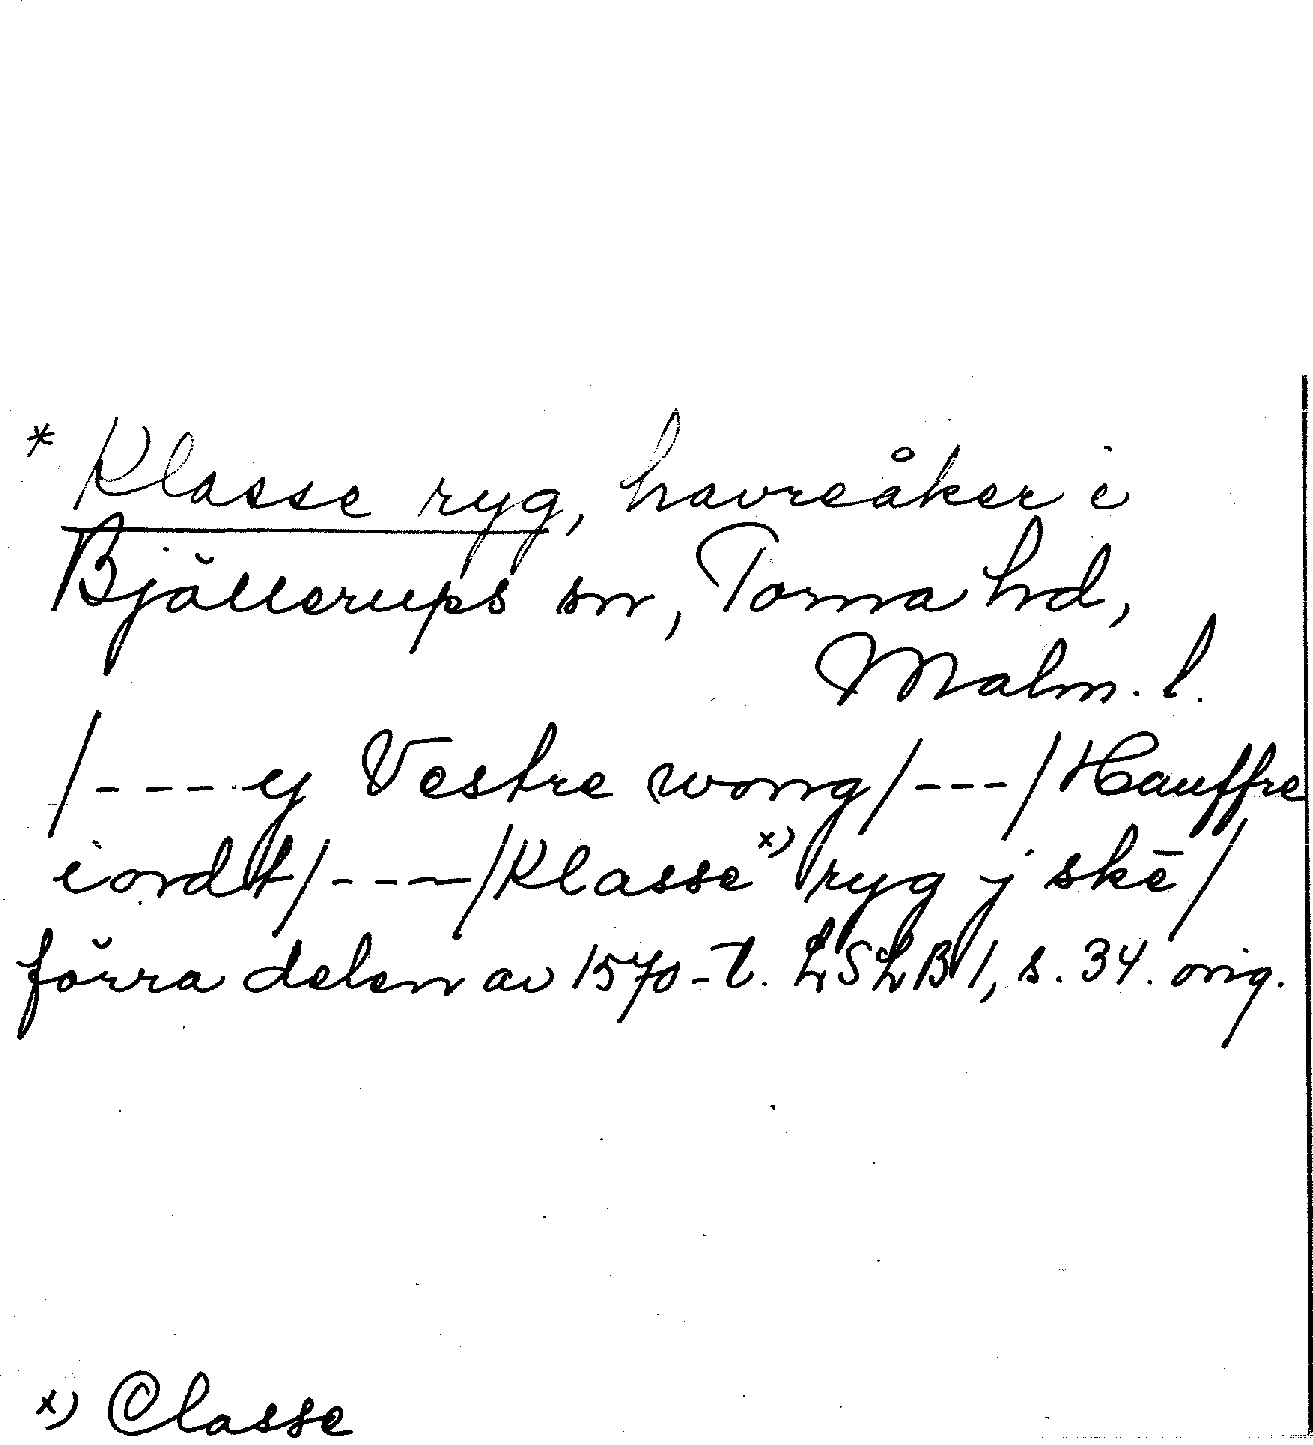 * Klasse ryg, havreåker i
Bjällerups sn, Torna hd,
Malm. l.
/----y Vestre wong/---/Hauffre
iordt/----/Klasse x) ryg j skē/
förra delen av 1570-t. LSLB 1, s. 34. orig.
x) Classe